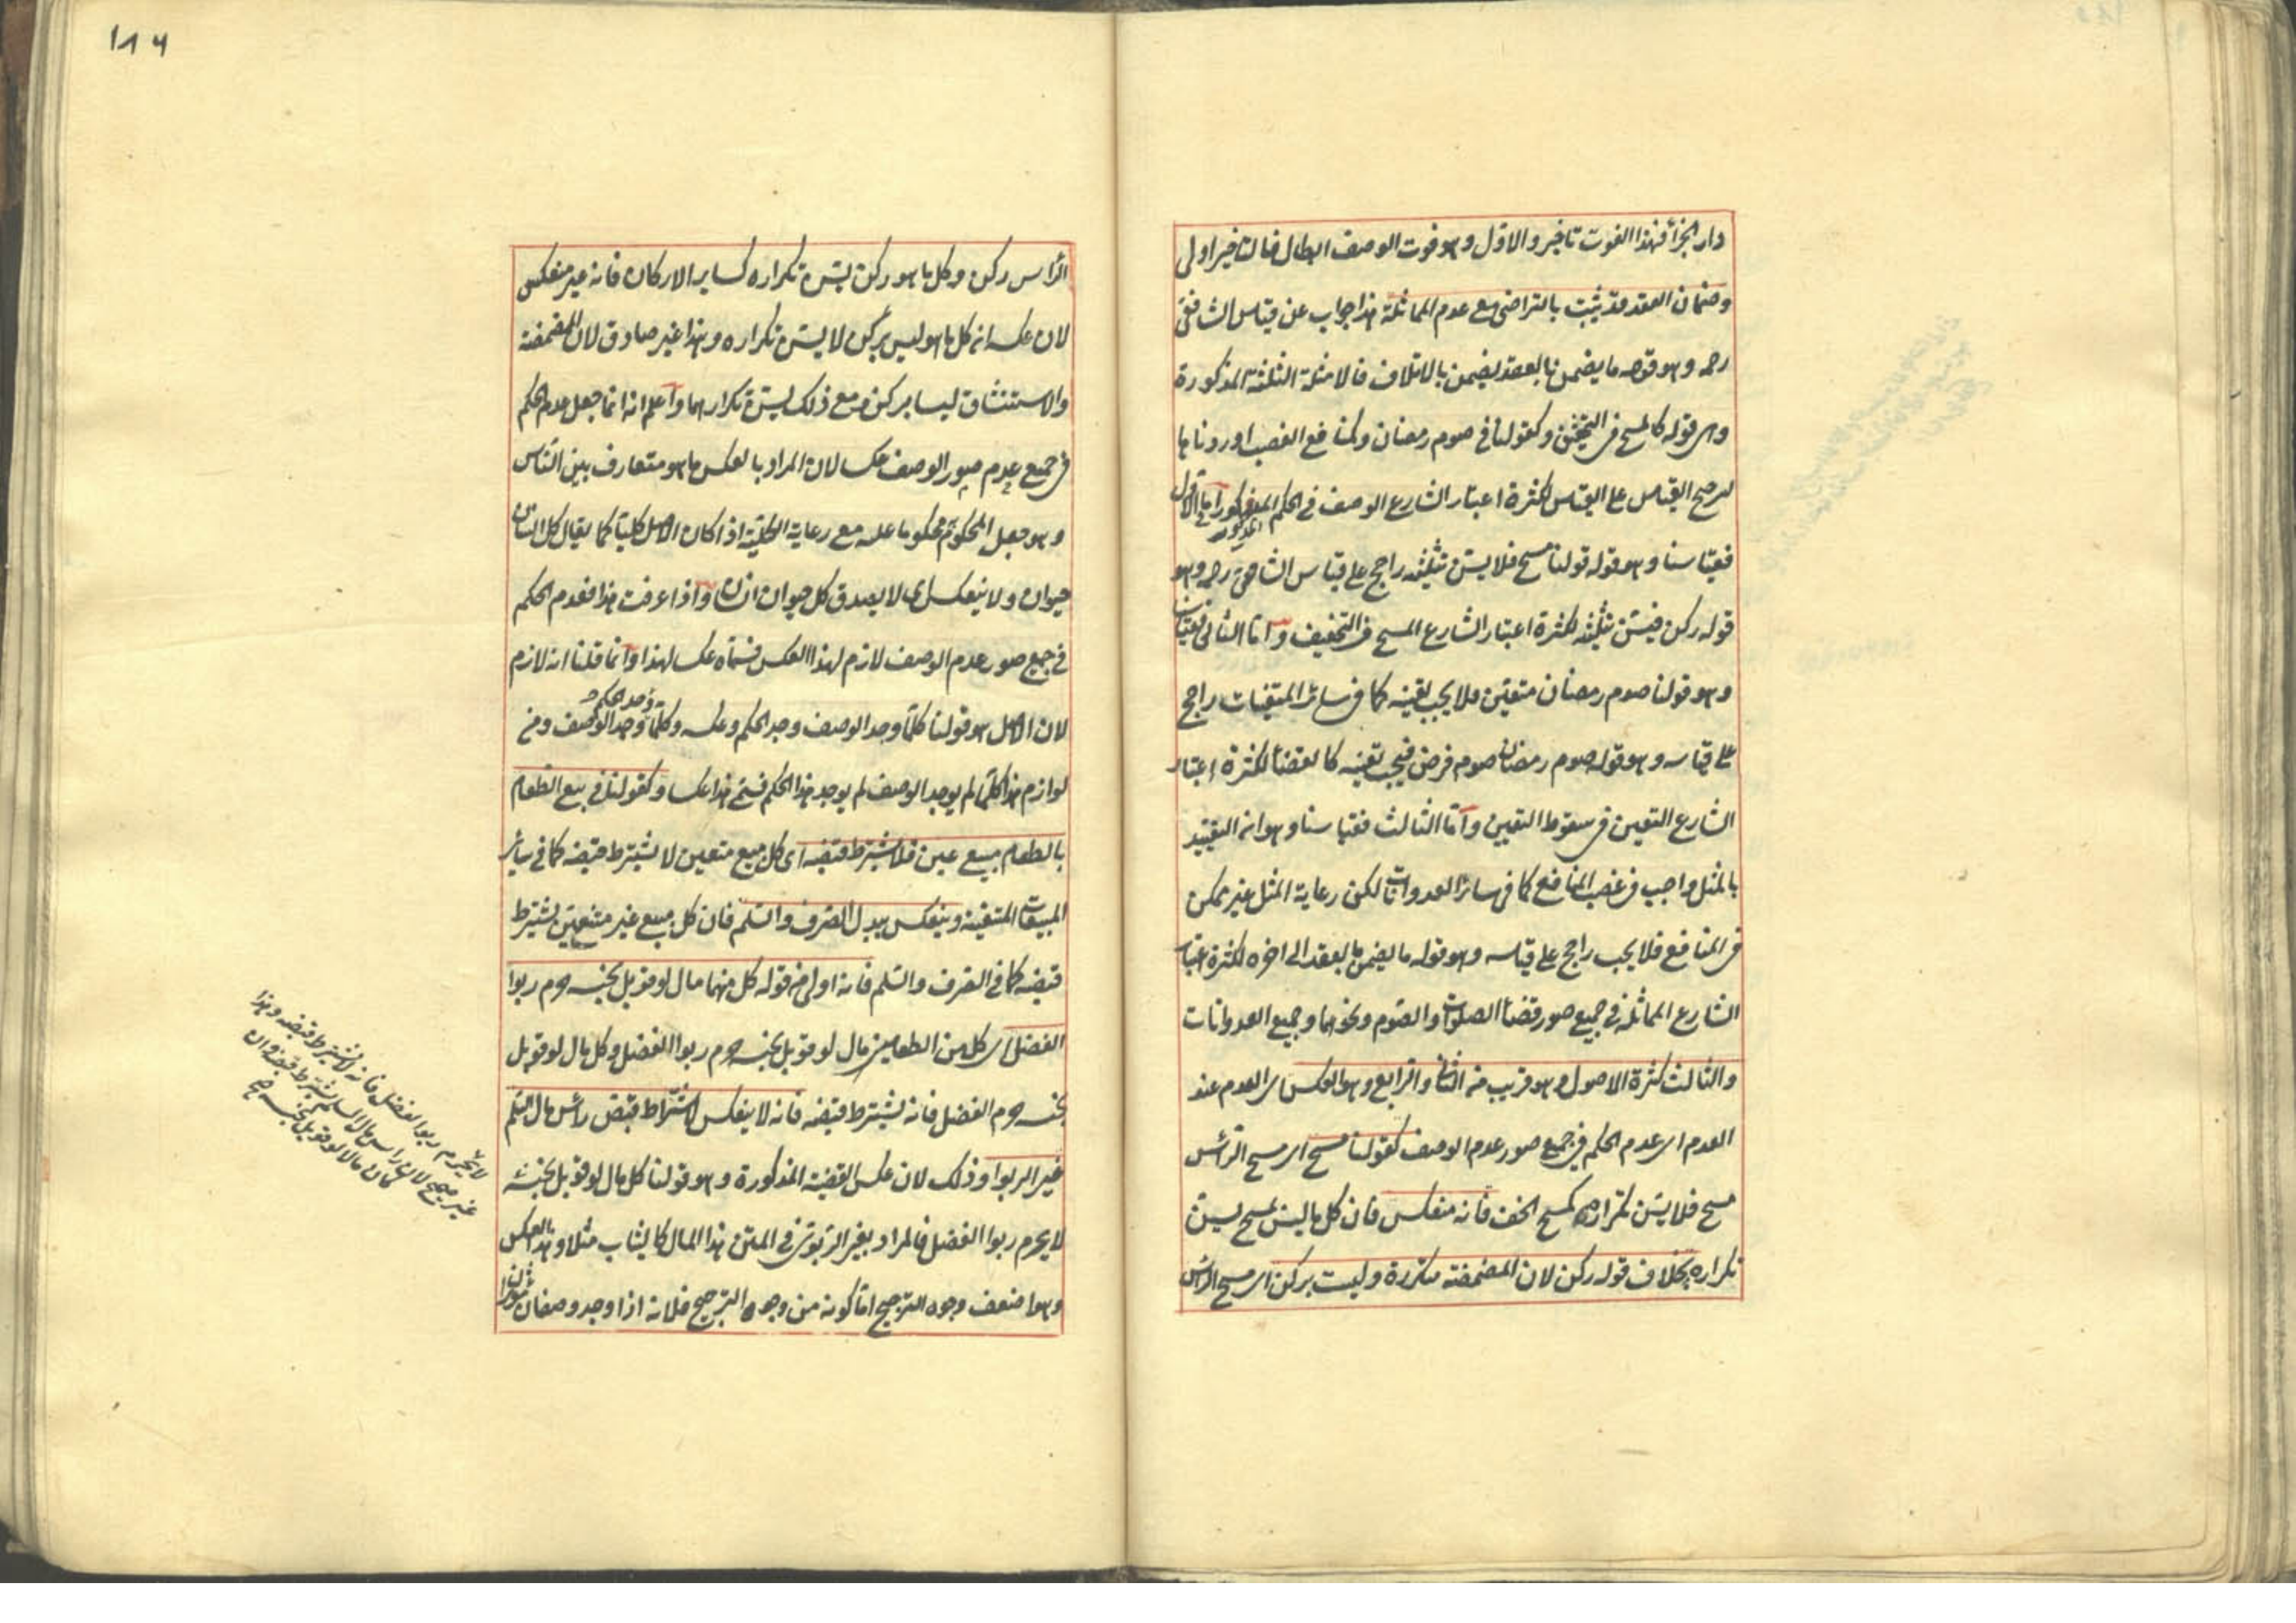 دار الجزاء فهذا الفوت تاخير والاول وهو فوت الوصف ابطال فالتاخير اولى
وضمان العقد قد يثبت بالتراضي مع عدم المماثلة هذا جواب عن قياس الشافعي
رحمه وهو قوله ما يضمن بالعقد يضمن بالاتلاف فالامثلة الثلثة المذكورة
وهي قوله كالمسح في التخفيف وكقولنا في صوم رمضان وكمنافع الغصب اوردناها
لترجيح القياس على القياس لكثرة اعتبار الشارع الوصف في الحكم المذكور اما الاول
فقياسنا وهو قوله قولنا مسح فلا يسن تثليثه راجح على قياس الشافعي رحمه وهو
قوله ركن فيسن تثليثه لكثرة اعتبار الشارع المسح في التخفيف واما الثاني فقياسنا
وهو قولنا صوم رمضان متعين فلا يجب تعيينه كما في سائر المتعينات راجح
على قياسه وهو قوله صوم رمضان صوم فرض فيجب تعيينه كالقضاء لكثرة اعتبار
الشارع التعين في سقوط التعيين واما الثالث فقياسنا وهو انه التقييد
بالمثل واجب في غصب المنافع كما في سائر العدوانات لكن رعاية المثل غير ممكن
في المنافع فلا يجب راجح على قياسه وهو قوله ما يضمن بالعقد الى اخره لكثرة اعتبار
الشارع المماثلة في جميع صور قضاء الصلوات والصوم ونحوهما وجميع العدوانات
والثالث كثرة الاصول وهو قريب من الثاني والرابع وهو العكس اى العدم عند
العدم اى عدم الحكم في جميع صور عدم الوصف كقولنا مسح اى مسح الرأس
مسح فلا يسن تكراره كمسح الخف فانه منعكس فان كل ما ليس بمسح يسن
تكراره بخلاف قوله ركن لان المضمضة متكررة وليست بركن اى مسح الراس
١٨٦
الرأس ركن وكل ما هو ركن يسن تكراره كساير الاركان فانه غير منعكس
لان عكسه انه كل ما هو ليس بركن لا يسن تكراره وهذا غير صادق لان المضمضة
والاستنشاق ليسا بركن ومع ذلك يسن تكرارهما واعلم انه انما جعل عدم الحكم
في جميع عدم صور الوصف عكسا لان المراد بالعكس ما هو متعارف بين الناس
وهو جعل المحكوم به محكوما عليه مع رعاية الكلية اذا كان الاصل كليا كما يقال كل انسان
حيوان ولا ينعكس اى لا يصدق كل حيوان انسان واذا عرفت هذا فعدم الحكم
في جميع صور عدم الوصف لازم لهذا العكس فسماه عكسا لهذا وانما قلنا انه لازم
لان الاصل هو قولنا كلما وجد الوصف وجد الحكم وعكسه وكلما وجد الحكم وجد الوصف ومن
لوازم هذا كلما لم يوجد الوصف لم يوجد هذا الحكم فسمى هذا عكسا وكقولنا في بيع الطعام
بالطعام مبيع عين فلا يشترط قبضه اى كل مبيع متعين لا يشترط قبضه كما في سائر
المبيعات المتعينة وينعكس ببدل الصرف والسلم فان كل مبيع غير متعين يشترط
قبضه كما في الصرف والسلم فانه اولى من قوله كل منهما مال لو قوبل بجنسه حرم ربوا
الفضل اى كل من الطعامين مال لو قوبل بجنسه حرم ربوا الفضل وكل مال لو قوبل
بجنسه حرم الفضل فانه يشترط قبضه فانه لا ينعكس لاشتراط قبض رأس مال السلم
غير الربوا وذلك لان عكس القضية المذكورة وهو قولنا كل مال لو قوبل بجنسه
لا يحرم ربوا الفضل فالمراد بغير الربوى في المتن هذا المال كالثياب مثلا وهذا العكس
وهو اضعف وجوه الترجيح اما كونه من وجوه الترجيح فلانه اذا وجد وصفان مؤثران
لا يحرم ربوا الفضل فانه لا يشترط قبضه وهذا
غير صحيح لان راس مال السلم يشترط قبضه وان
كان مالا لو قوبل بجنسه